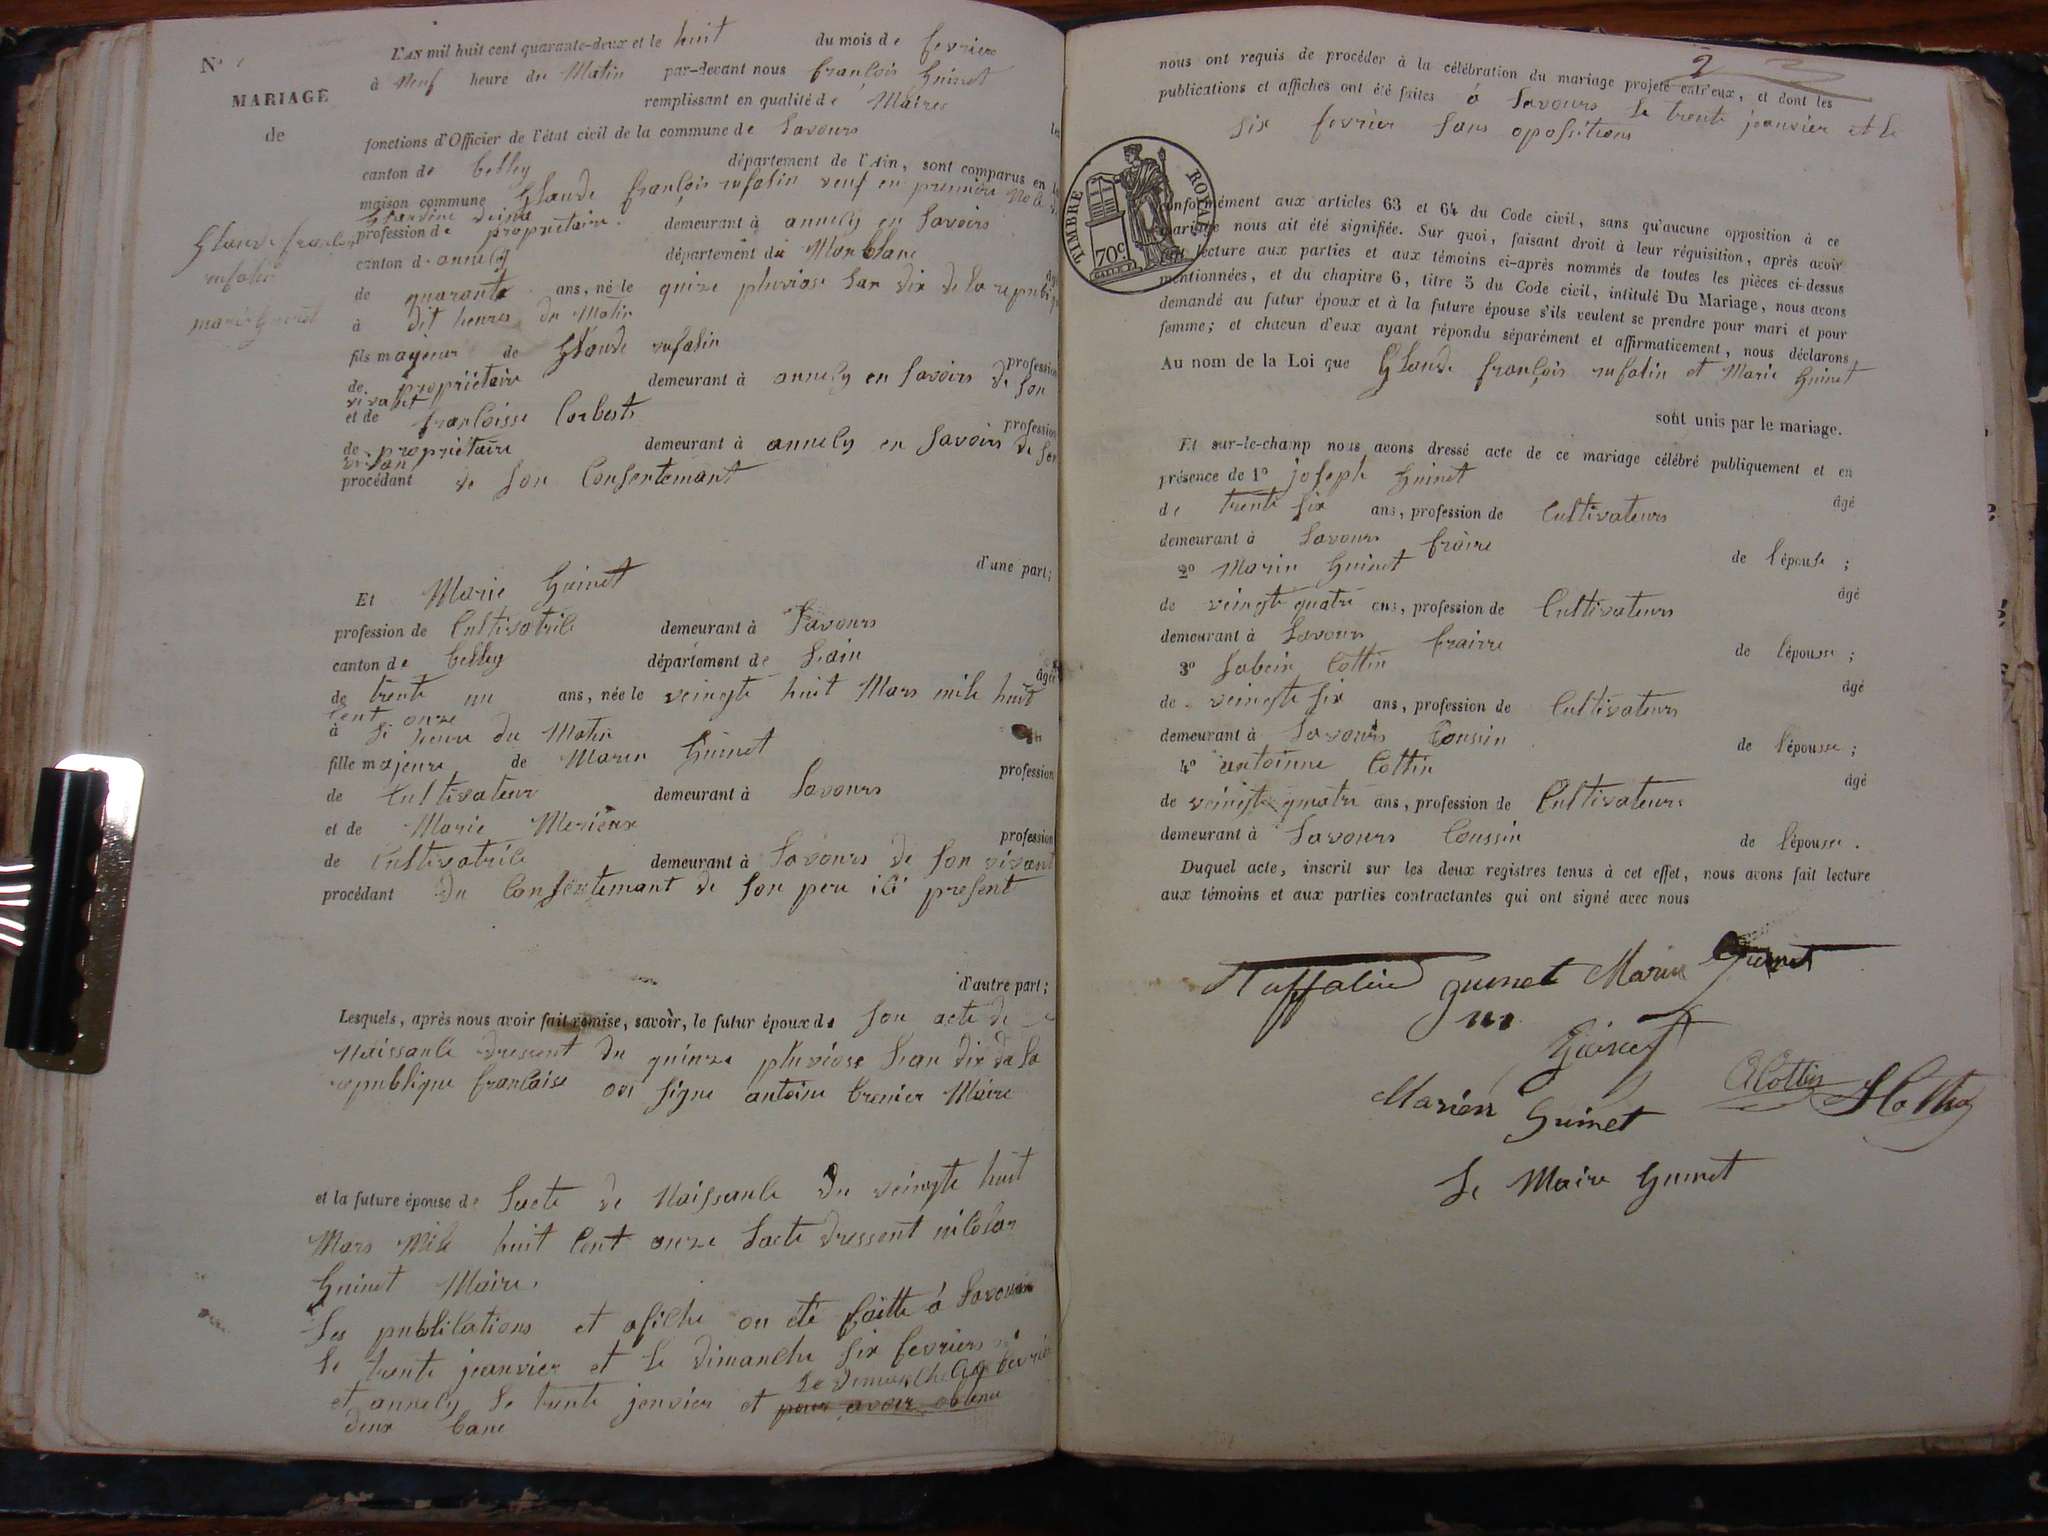 N°
MARIAGE
de
Glaude françois
rufalin
marie Guinet
L'AN mil huit cent quarante-deux et le huit du mois de fevrier
à Neuf heure du Matin par-devant nous françois Guinet
remplissant en qualité de Maires les
fonctions d'Officier de l'état civil de la commune de Lavours
canton de belley département de l'Ain, sont comparus en la
maison commune Glaude françois rufalin veuf en premiere
profession de propriétaire. demeurant à annecy en Savoirs
canton d annecy département du Mon blanc
âgé
de quarante ans, né le quinze pluviose lan dix de la republique
à dit heures du Matin
fils majeur de Glaude rufalin
profession
de propriétaire demeurant à annecy en Savoirs de son
vivant
et de françoisse Corbest
profession
de propriétaire demeurant à annecy en Savoirs de son
vivan
procédant de son Consentemant
d'une part;
Et Marie Guinet
profession de Cultivatrice demeurant à Lavours
canton de belley département de Lain
âgée
de trente un ans, née le veingte huit Mars mile huit
cent onze
à si heure du Matin
fille majeure de Maren Guinet
profession
de Cultivateur demeurant à Lavours
et de Marie Merieux
profession
de Cultivatrice demeurant à Lavours de son vivant
procédant du Consentemant de son pere ici present
d'autre part;
Lesquels, après nous avoir fait remise, savoir, le futur époux de son acte de
Naissance dressent du quinze pluviose Lan dix de la
republique francaise ou signe antoine brenier Maire
et la future épouse de Lacte de Naissance du veingte huit
Mars Mile huit Cent onze Lacte dressent nicolas
Guinet Maire.
Les publications et afiche on été faitte à Lavours
le trente jeanvier et le dimanche six fevriers
et annecy le trente jenvier et pour avoir obtenu
le dimanche
deux banc
2
nous ont requis de procéder à la célébration du mariage projeté entr'eux, et dont les
publications et affiches ont été faites à Lavours le trente jeanvier et le
six fevrier sans opositions
TIMBRE ROYAL
70c
conformément aux articles 63 et 64 du Code civil, sans qu'aucune opposition à ce
mariage nous ait été signifiée. Sur quoi, faisant droit à leur réquisition, après avoir
fait lecture aux parties et aux témoins ci-après nommés de toutes les pièces ci-dessus
mentionnées, et du chapitre 6, titre 5 du Code civil, intitulé Du Mariage, nous avons
demandé au futur époux et à la future épouse s'ils veulent se prendre pour mari et pour
femme; et chacun d'eux ayant répondu séparément et affirmaticement, nous déclarons
Au nom de la Loi que Glaude françois rufalin et Marie Guinet
sont unis par le mariage.
Et sur-le-champ nous avons dressé acte de ce mariage célébré publiquement et en
présence de 1° joseph Guinet
âgé
de trente six ans, profession de Cultivateurs
demeurant à Lavours fraire de l'épouse;
2° Marin Guinet
âgé
de veingte quatre ans, profession de Cultivateurs
demeurant à Lavours fraire de l'épouse;
3° Sabein Cottin
âgé
de veingte six ans, profession de Cultivateurs
demeurant à Lavours Coussin de l'épouse;
4° antoinne Cottin
âgé
de veingte quatre ans, profession de Cultivateurs
demeurant à Lavours Coussin de l'épouse.
Duquel acte, inscrit sur les deux registres tenus à cet effet, nous avons fait lecture
aux témoins et aux parties contractantes qui ont signé avec nous
Ruffalin guinet Marie Guinet
Guinet
Marien Guinet ACottin SCottin
Le Maire Guinet